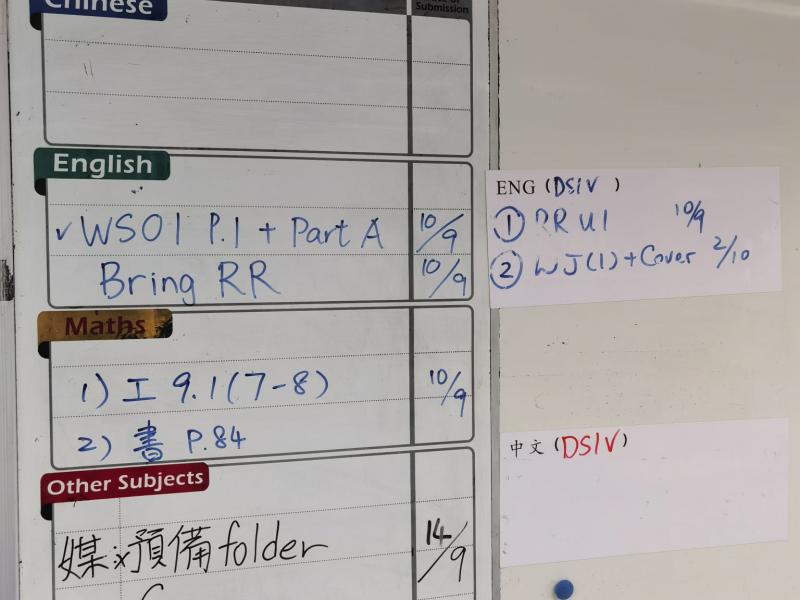 Chinese
Submission
English
✓ WS01 P.1 + Part A 10/9
Bring RR 10/9
Maths
1) 工 9.1(7-8) 10/9
2) 書 P.84
Other Subjects
媒:預備folder 14/9
ENG (DSIV)
① RR U1 10/9
② WJ(1)+Cover 2/10
中文 (DSIV)